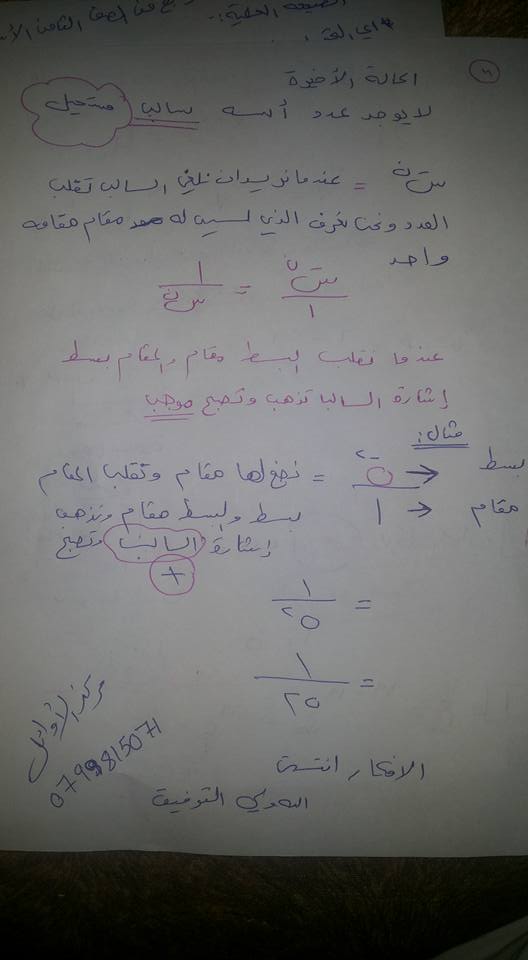 الصيغه العلمية :-
من الصف الثامن الأ
الحالة الأخيرة
لا يوجد عدد أسه سالب مستحيل
س⁻ⁿ = عندما نريد ان نلغي السالب نقلب
العدد ونحن نعرف الذي ليس له مقام مقامه
واحد
س⁻ⁿ/١ = ١/سⁿ
عندما نقلب البسط مقام والمقام بسط
إشارة السالب تذهب وتصبح موجب
مثال :
بسط ← ٥⁻² = نضع لها مقام ونقلب المقام
مقام ← ١ بسط والبسط مقام وتذهب
إشارة السالب وتصبح
+
= ١/٥²
= ١/٢٥
الافكار انتهت
الله ولي التوفيق
مركز الأوائل